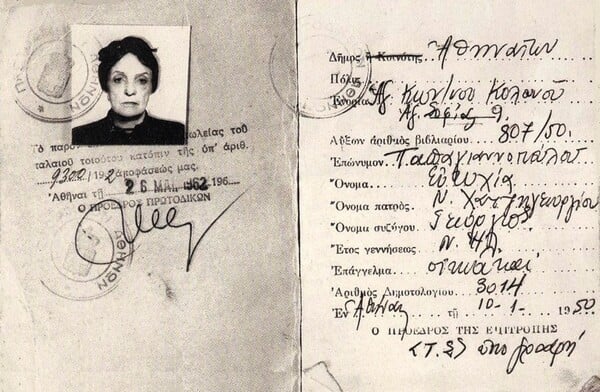 Ὁ παρὸν
ωλείας τοῦ
παλαιοῦ τοιούτου κατόπιν τῆς ὑπ' ἀριθ.
9300/1962 ἀποφάσεώς μας.
Ἀθῆναι τῇ 26 ΜΑΪ. 1962 196
Ο ΠΡΟΕΔΡΟΣ ΠΡΩΤΟΔΙΚΩΝ
ΑΘΗΝΩΝ
ΑΘΗΝΩΝ
Δῆμος ἢ Κοινότης Ἀθηναίων
Πόλις
Ἐνορία Ἁγ. Κων/νου Κολωνοῦ
Ἁγ. Σοφίας 9.
Αὔξων ἀριθμὸς βιβλιαρίου 807/50.
Ἐπώνυμον Παπαγιαννοπούλου
Ὄνομα Εὐτυχία
Ὄνομα πατρὸς Ν. Χατζηγεωργίου
Ὄνομα συζύγου Γεώργιος
Ἔτος γεννήσεως
Ἐπάγγελμα οἰκιακά
Ἀριθμὸς Δημοτολογίου 3014
Ἐν Ἀθήναις τῇ 10-1- 1950
Ο ΠΡΟΕΔΡΟΣ ΤΗΣ ΕΠΙΤΡΟΠΗΣ
(Τ.Σ) ὑπογραφή